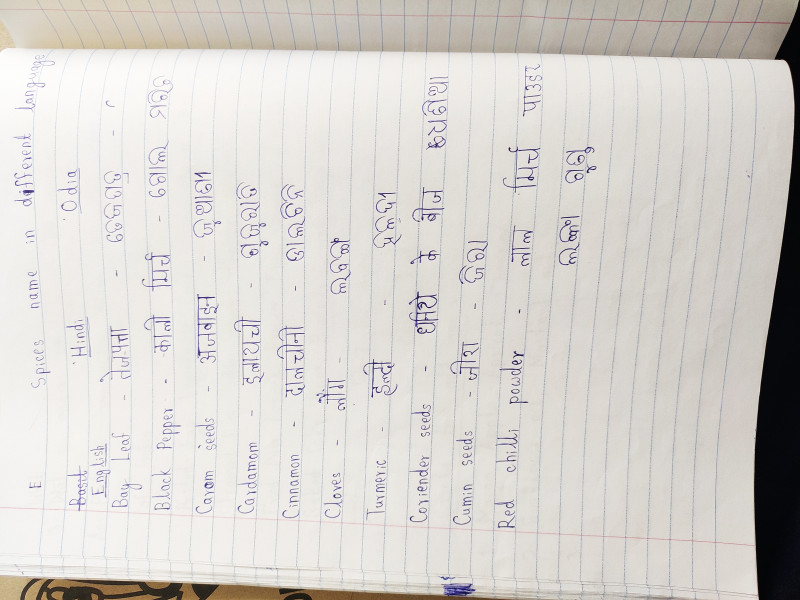 E Spices name in different language
Basil
English Hindi Odia
Bay Leaf - तेजपत्ता - ତେଜପତ୍ର -
Black Pepper - काली मिर्च - ଗୋଲ ମରିଚ
Carom seeds - अजवाइन - ଜୁଆଣୀ
Cardamom - इलायची - ଗୁଜୁରାତି
Cinnamon - दालचीनी - ଡାଲଚିନି
Cloves - लौंग - ଲବଙ୍ଗ
Turmeric - हल्दी - ହଳଦୀ
Coriender seeds - धनिये के बीज ଧନିଆ
Cumin seeds - जीरा - ଜିରା
Red chilli powder - लाल मिर्च पाउडर
ଲଙ୍କା ଗୁଣ୍ଡ